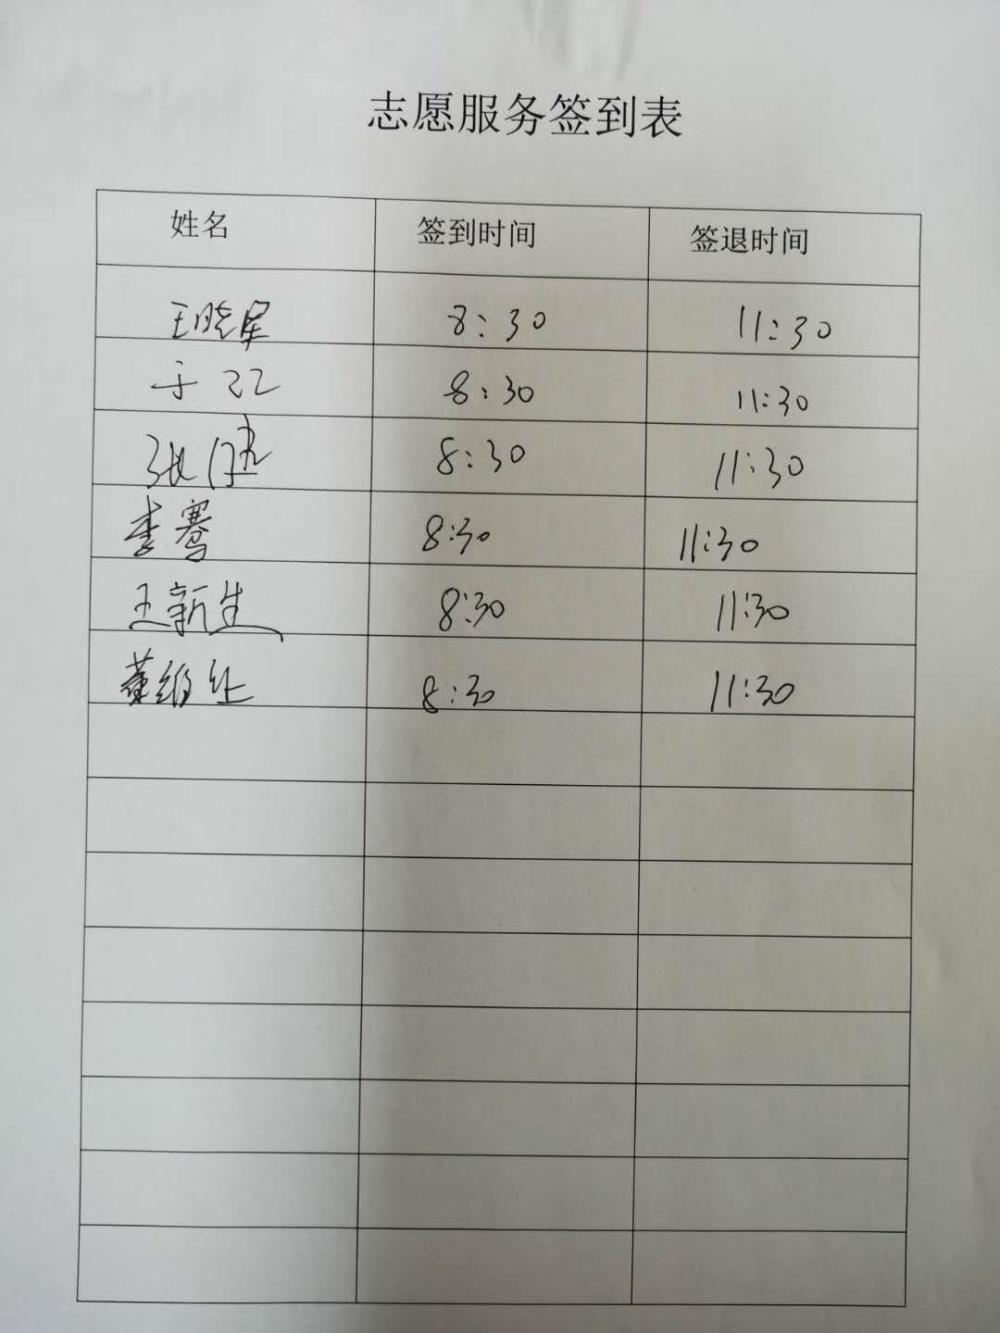 志愿服务签到表
姓名 签到时间 签退时间
王晓星 8:30 11:30
于 8:30 11:30
张 8:30 11:30
李骞 8:30 11:30
王新生 8:30 11:30
8:30 11:30